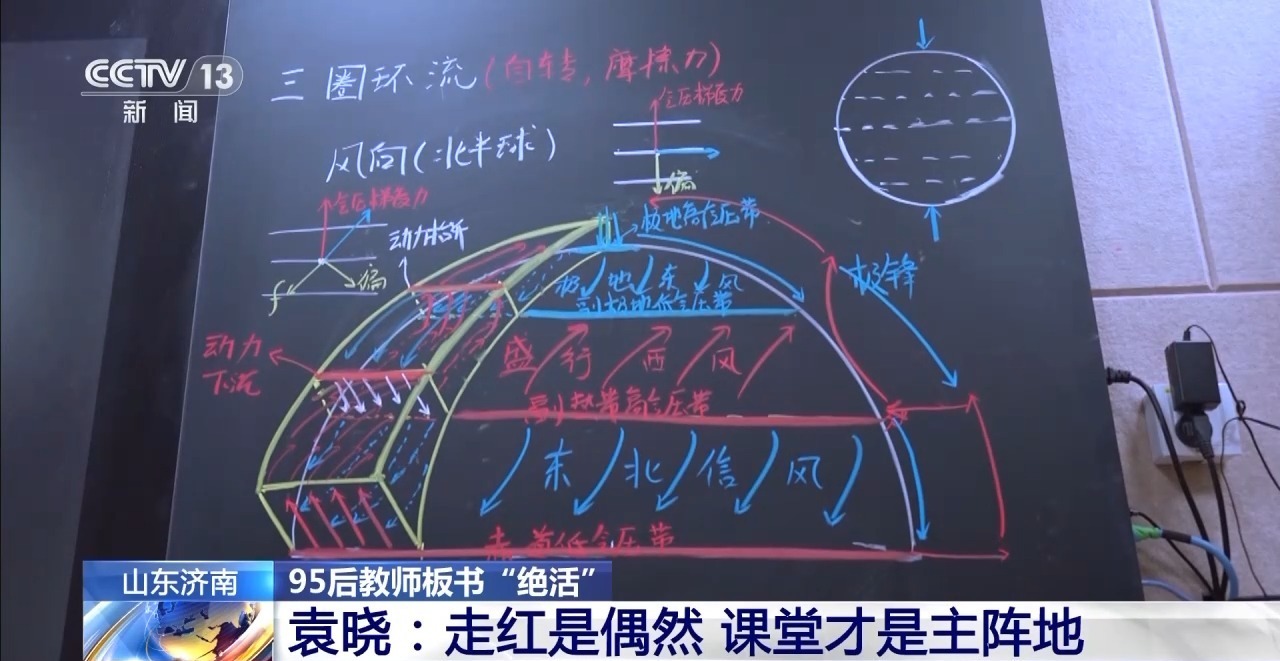 CCTV 13
新闻
三圈环流(自转,摩擦力)
风向(北半球)
气压梯度力
偏
气压梯度力
f
偏
动力抬升
极地高气压带
极地东风
副极地低气压带
极锋
盛行西风
动力
下沉
副热带高气压带
东北信风
赤道低气压带
山东济南
95后教师板书“绝活”
袁晓：走红是偶然 课堂才是主阵地